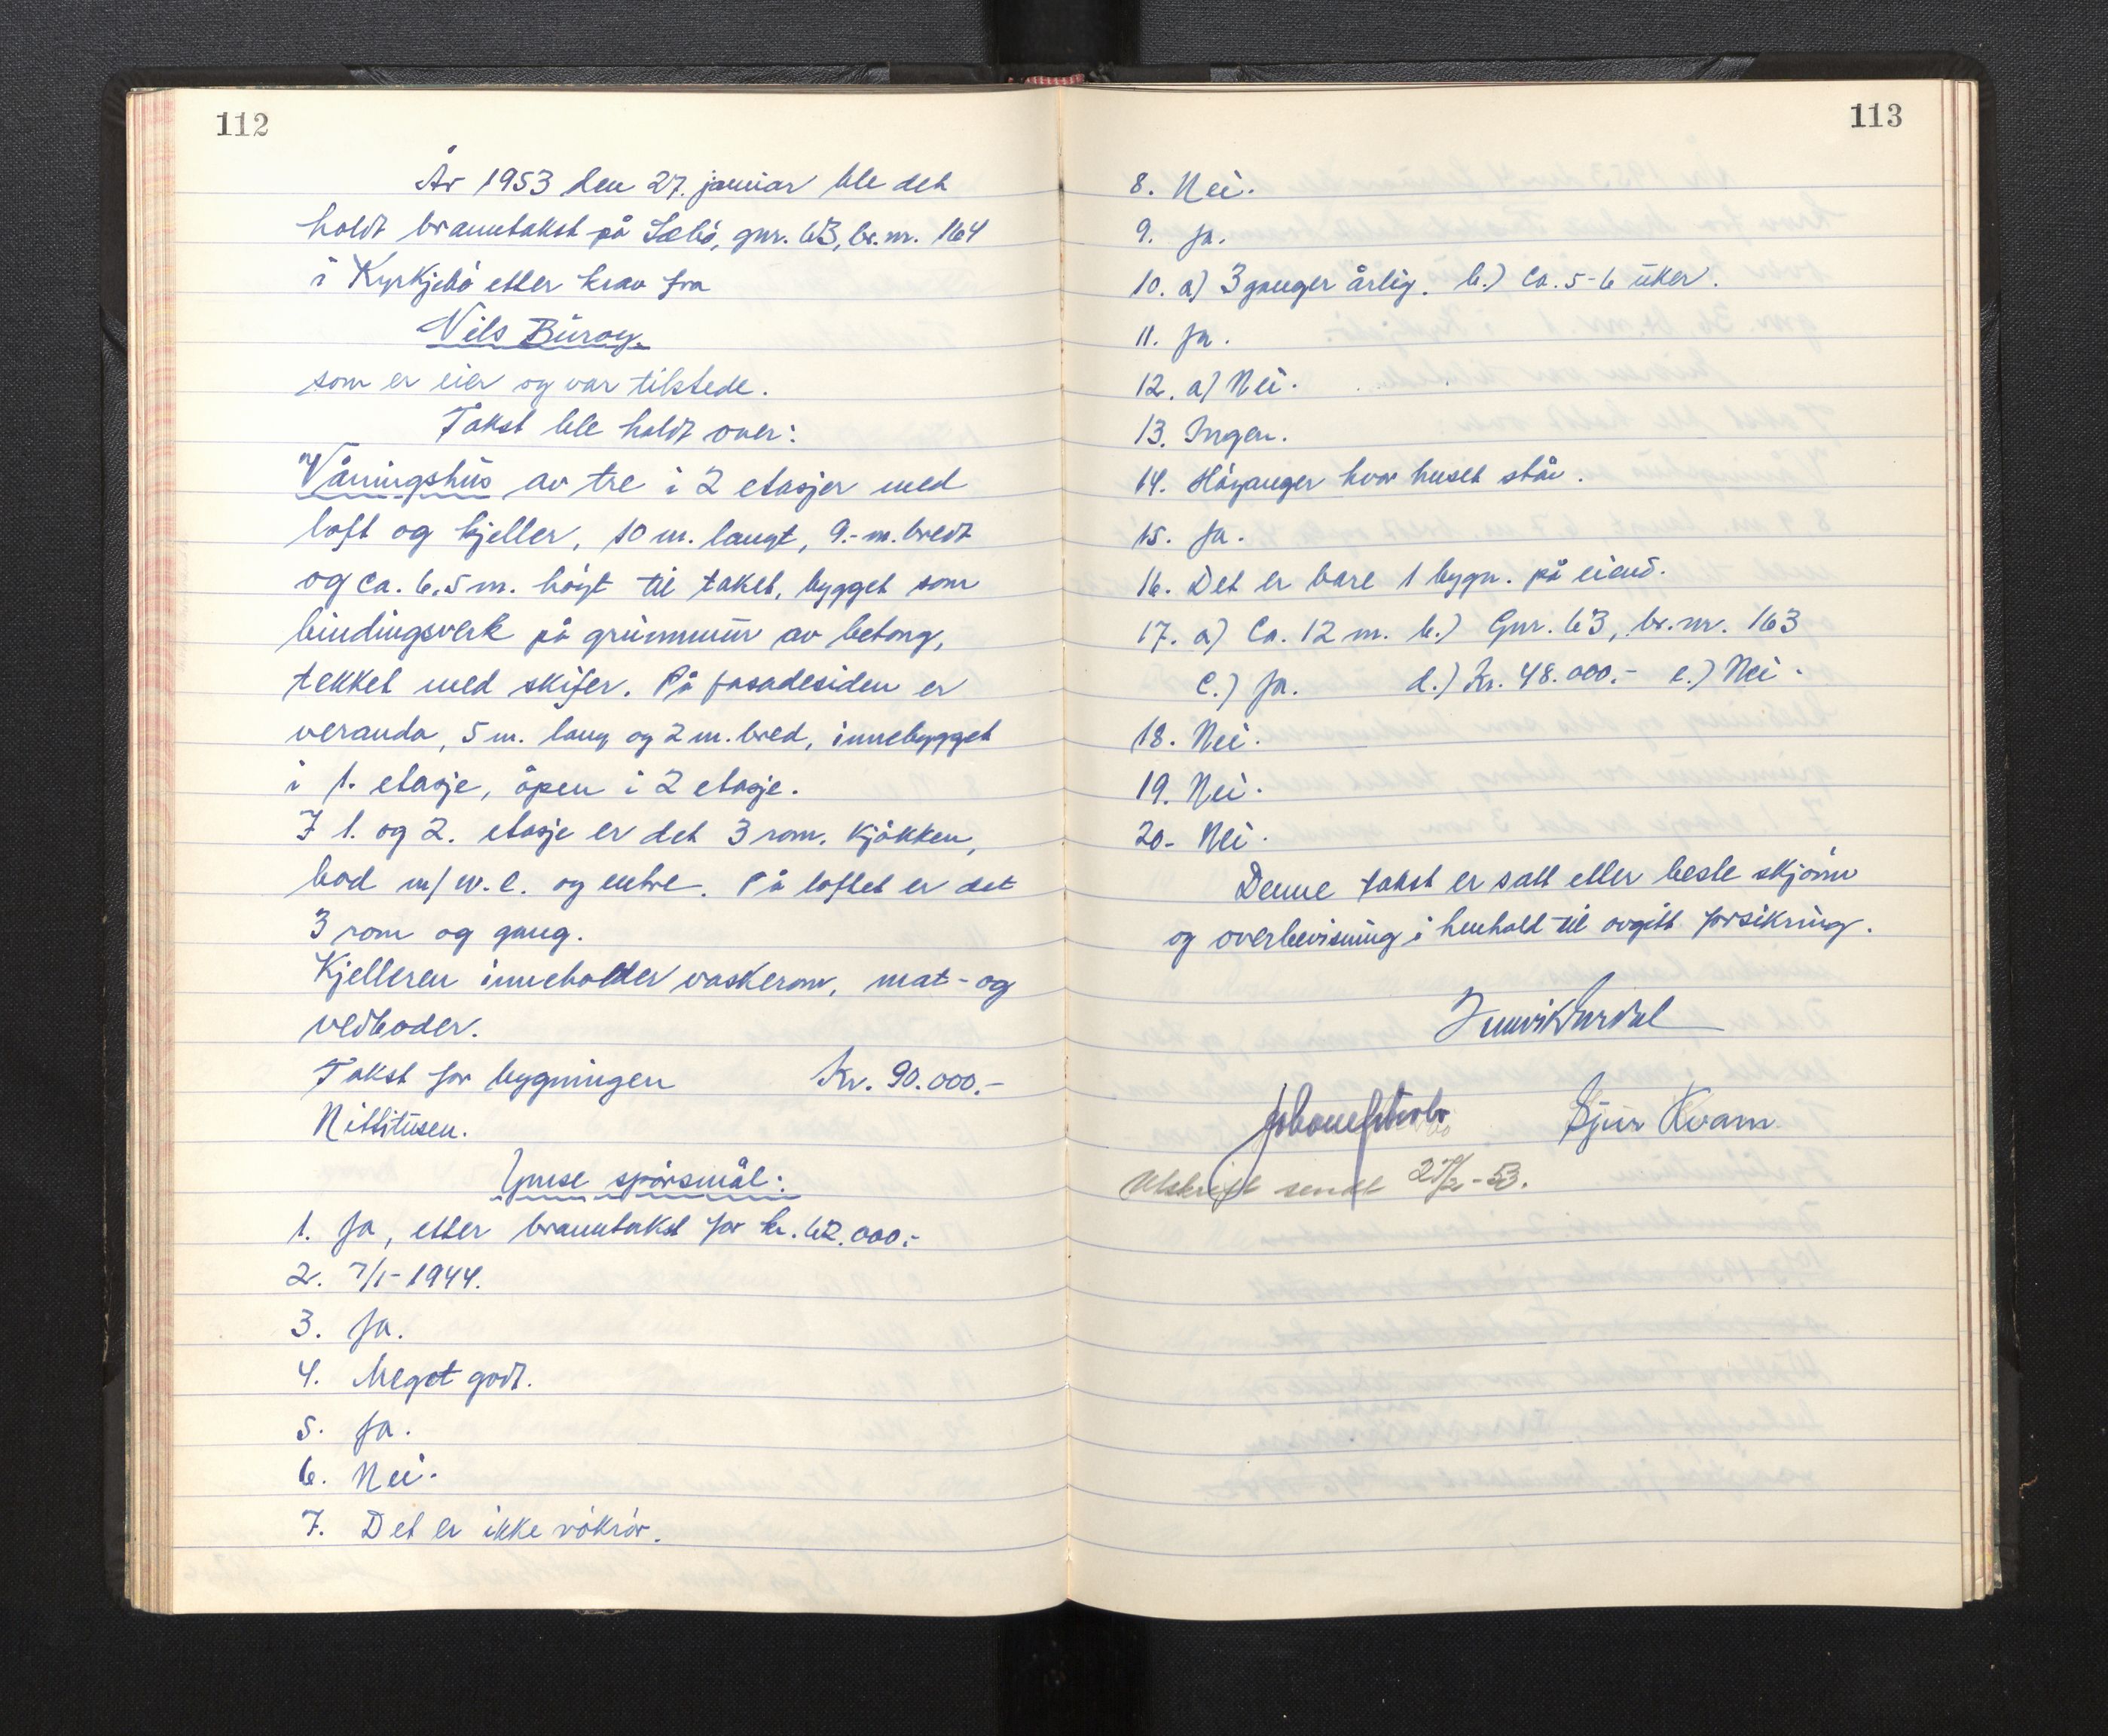 112
År 1953 den 27. januar ble det
holdt branntakst på Sæbö, gnr. 63, br.nr. 164
i Kyrkjebö etter krav fra
Nils Buroy.
som er eier og var tilstede.
Takst ble holdt over:
Våningshus av tre i 2 etasjer med
loft og kjeller, 10 m. langt, 9.- m. bredt
og ca. 6.5 m. höyt til taket, bygget som
bindingsverk på grunnmur av betong,
tekket med skifer. På fasadesiden er
veranda, 5 m. lang og 2 m. bred, innebygget
i 1. etasje, åpen i 2 etasje.
I 1. og 2. etasje er det 3 rom. kjökken,
bad m/ w.c. og entre. På loftet er det
3 rom og gang.
Kjelleren inneholder vaskerom, mat- og
vedboder.
Takst for bygningen Kr. 90.000.-
Nittitusen.
Ymse spörsmål:
1. Ja, etter branntakst for kr. 62.000.-
2. 7/1-1944.
3. Ja.
4. Meget godt.
5. Ja.
6. Nei.
7. Det er ikke rökrör.
113
8. Nei.
9. Ja.
10. a) 3 ganger årlig. b.) ca. 5-6 uker.
11. Ja.
12. a) Nei.
13. Ingen.
14. Höyanger hvor huset står.
15. Ja.
16. Det er bare 1 bygn. på eiend.
17. a) Ca. 12 m. b.) Gnr. 63, br.nr. 163
c.) Ja. d.) Kr. 48.000.- e.) Nei.
18. Nei.
19. Nei.
20. Nei.
Denne takst er satt etter beste skjönn
og overbevisning i henhold til avgitt forsikring.
Bjur Kvam
Utskrift sendt -53.